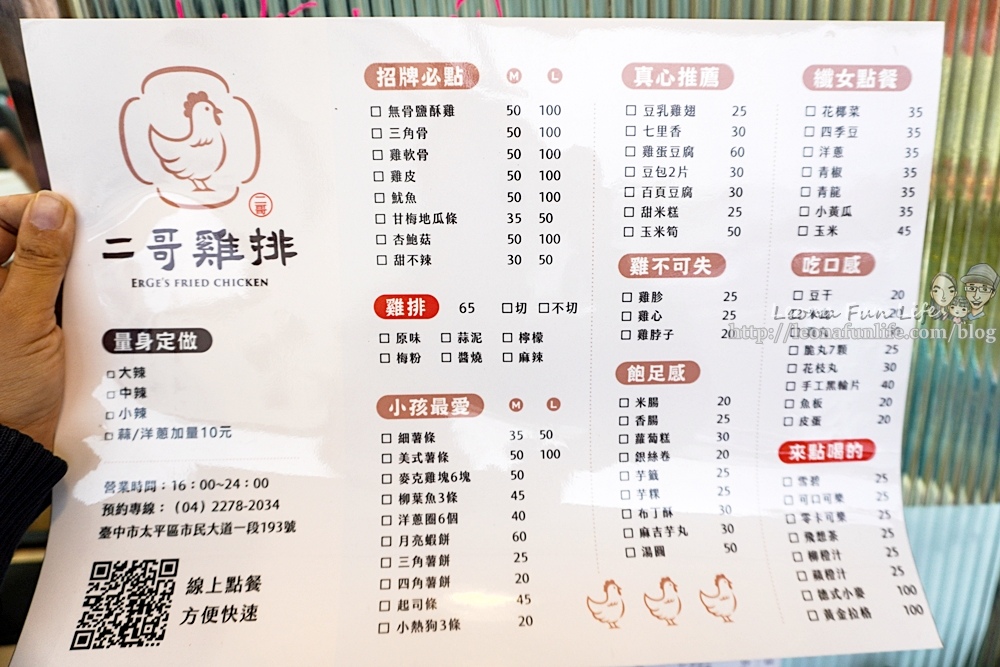 二哥
二哥雞排
ERGE'S FRIED CHICKEN
量身定做
大辣
中辣
小辣
蒜/洋蔥加量10元
營業時間：16：00~24：00
預約專線：（04）2278-2034
臺中市太平區市民大道一段193號
線上點餐
方便快速
招牌必點 M L
無骨鹽酥雞 50 100
三角骨 50 100
雞軟骨 50 100
雞皮 50 100
魷魚 50 100
甘梅地瓜條 35 50
杏鮑菇 50 100
甜不辣 30 50
雞排 65 切 不切
原味 蒜泥 檸檬
梅粉 醬燒 麻辣
小孩最愛 M L
細薯條 35 50
美式薯條 50 100
麥克雞塊6塊 50
柳葉魚3條 45
洋蔥圈6個 40
月亮蝦餅 60
三角薯餅 25
四角薯餅 20
起司條 45
小熱狗3條 20
真心推薦
豆乳雞翅 25
七里香 30
雞蛋豆腐 60
豆包2片 30
百頁豆腐 30
甜米糕 25
玉米筍 50
雞不可失
雞胗 25
雞心 25
雞脖子 20
飽足感
米腸 20
香腸 25
蘿蔔糕 30
銀絲卷 20
芋籤 25
芋粿 25
布丁酥 30
麻吉芋丸 30
湯圓 50
纖女點餐
花椰菜 35
四季豆 35
洋蔥 35
青椒 35
青龍 35
小黃瓜 35
玉米 45
吃口感
豆干 20
20
25
脆丸7顆 25
花枝丸 30
手工黑輪片 40
魚板 20
皮蛋 20
來點喝的
雪碧 25
可口可樂 25
零卡可樂 25
飛想茶 25
柳橙汁 25
蘋橙汁 25
德式小麥 100
黃金拉格 100
Leona Fun Life
http://leonafunlife.com/blog